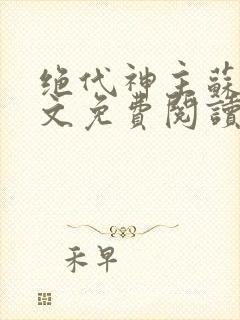 绝代神主蘇
文免費閱讀
禾早